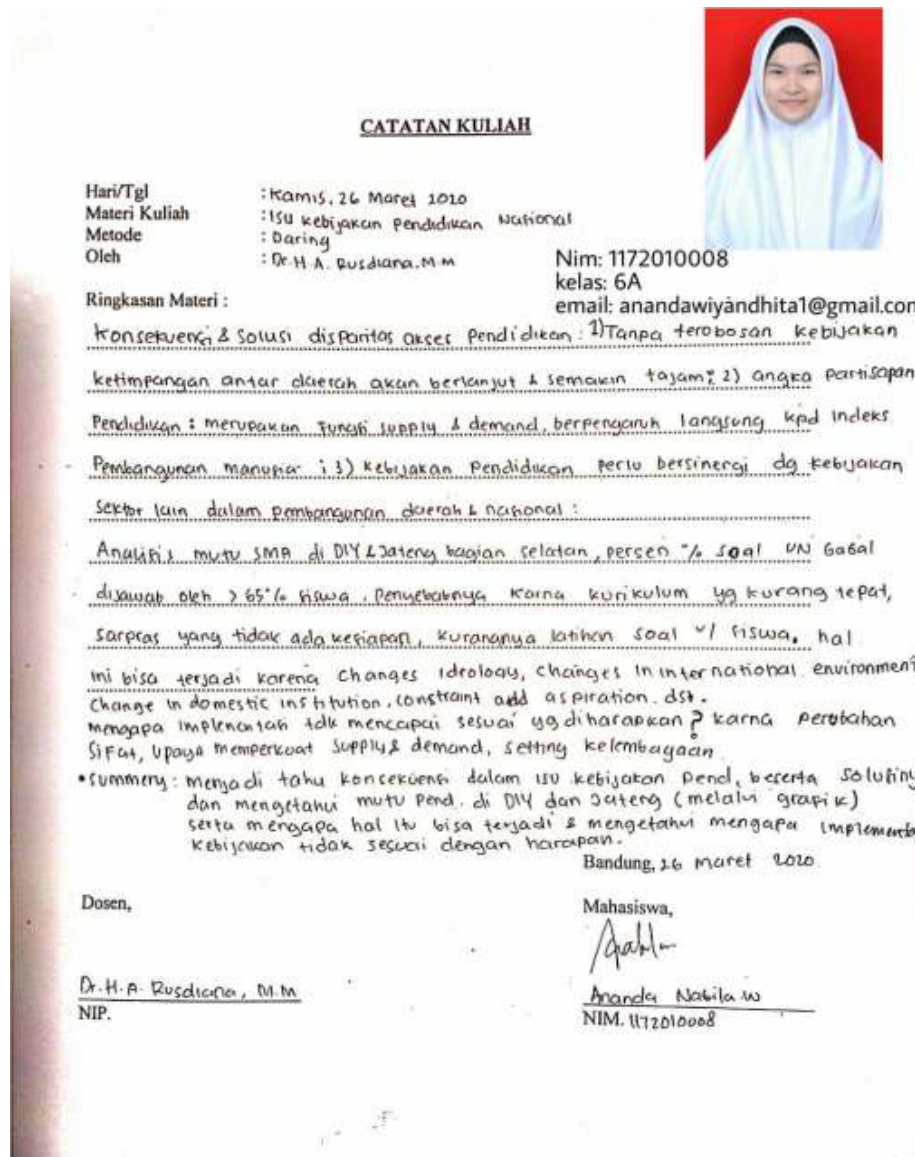 CATATAN KULIAH
Hari/Tgl : Kamis, 26 Maret 2020
Materi Kuliah : Isu kebijakan Pendidikan Nasional
Metode : Daring
Oleh : Dr. H. A. Rusdiana. M.M
Nim: 1172010008
kelas: 6A
email: anandawiyandhita1@gmail.com
Ringkasan Materi :
Konsekuensi & Solusi disparitas akses Pendidikan : 1) Tanpa terobosan kebijakan
ketimpangan antar daerah akan berlanjut & semakin tajam; 2) angka partisapan
Pendidikan : merupakan fungsi supply & demand, berpengaruh langsung kpd indeks
Pembangunan manusia ; 3) kebijakan Pendidikan perlu bersinergi dg kebijakan
Sektor lain dalam pembangunan daerah & nasional :
Analisis mutu SMA di DIY & Jateng bagian selatan, persen % soal UN Gagal
dijawab oleh > 65% siswa. Penyebabnya karna kurikulum yg kurang tepat,
sarpras yang tidak ada kesiapan, kurangnya latihan soal u/ siswa. hal
ini bisa terjadi karena changes Ideology, changes in international environment
Change in domestic institution, constraint add aspiration. dst.
mengapa implementasi tdk mencapai sesuai yg diharapkan ? karna perubahan
Sifat, upaya memperkuat Supply & demand, setting kelembagaan
• summery : menjadi tahu konsekuensi dalam isu kebijakan pend, beserta Solusiny
dan mengetahui mutu Pend. di DIY dan Jateng (melalui grafik)
serta mengapa hal itu bisa terjadi & mengetahui mengapa implementa
kebijakan tidak sesuai dengan harapan.
Bandung, 26 maret 2020
Dosen,
Mahasiswa,
Dr. H. A. Rusdiana, M.M
Ananda Nabila W
NIP.
NIM. 1172010008